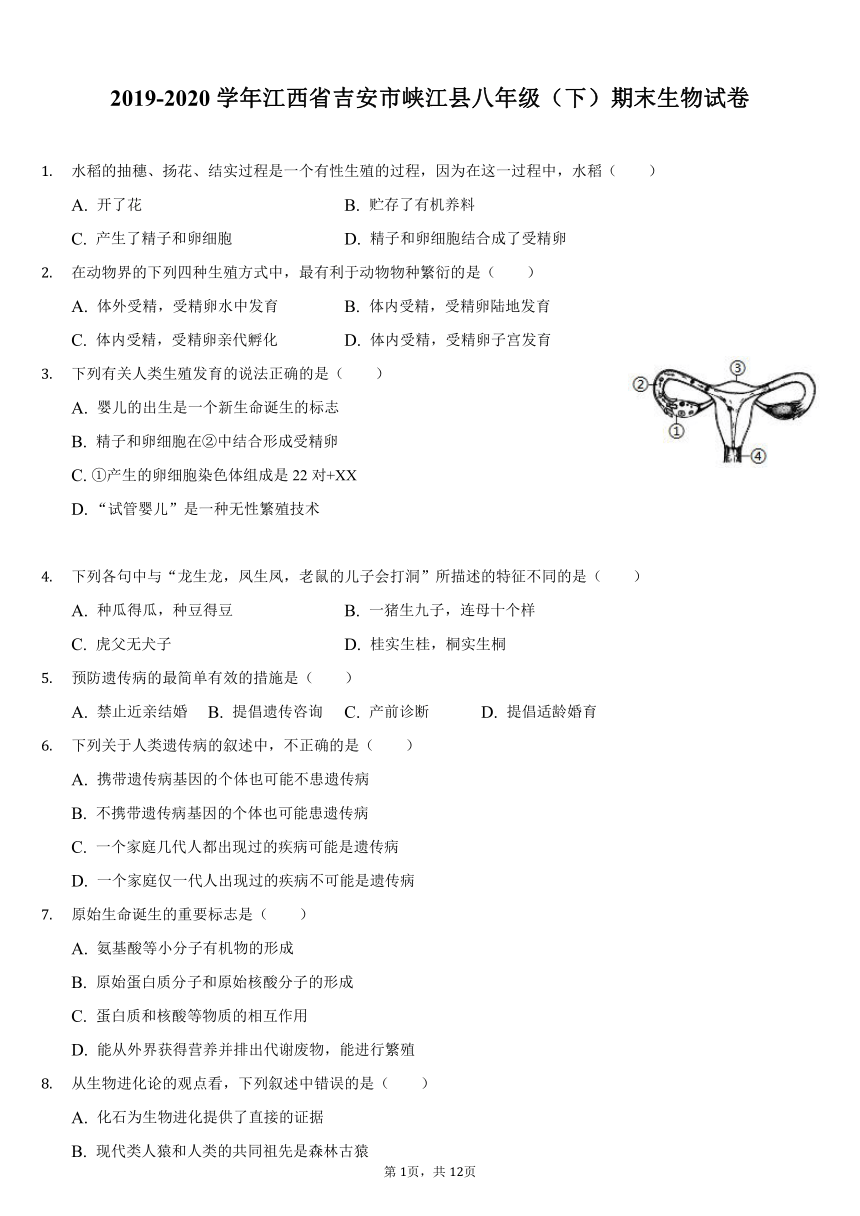 2019-2020 学年江西省吉安市峡江县八年级（下）期末生物试卷
1. 水稻的抽穗、扬花、结实过程是一个有性生殖的过程，因为在这一过程中，水稻（　　）
A. 开了花 B. 贮存了有机养料
C. 产生了精子和卵细胞 D. 精子和卵细胞结合成了受精卵
2. 在动物界的下列四种生殖方式中，最有利于动物物种繁衍的是（　　）
A. 体外受精，受精卵水中发育 B. 体内受精，受精卵陆地发育
C. 体内受精，受精卵亲代孵化 D. 体内受精，受精卵子宫发育
3. 下列有关人类生殖发育的说法正确的是（　　）
A. 婴儿的出生是一个新生命诞生的标志
B. 精子和卵细胞在②中结合形成受精卵
C. ①产生的卵细胞染色体组成是 22 对+XX
D. “试管婴儿”是一种无性繁殖技术
③
②
①
④
4. 下列各句中与“龙生龙，凤生凤，老鼠的儿子会打洞”所描述的特征不同的是（　　）
A. 种瓜得瓜，种豆得豆 B. 一猪生九子，连母十个样
C. 虎父无犬子 D. 桂实生桂，桐实生桐
5. 预防遗传病的最简单有效的措施是（　　）
A. 禁止近亲结婚 B. 提倡遗传咨询 C. 产前诊断 D. 提倡适龄婚育
6. 下列关于人类遗传病的叙述中，不正确的是（　　）
A. 携带遗传病基因的个体也可能不患遗传病
B. 不携带遗传病基因的个体也可能患遗传病
C. 一个家庭几代人都出现过的疾病可能是遗传病
D. 一个家庭仅一代人出现过的疾病不可能是遗传病
7. 原始生命诞生的重要标志是（　　）
A. 氨基酸等小分子有机物的形成
B. 原始蛋白质分子和原始核酸分子的形成
C. 蛋白质和核酸等物质的相互作用
D. 能从外界获得营养并排出代谢废物，能进行繁殖
8. 从生物进化论的观点看，下列叙述中错误的是（　　）
A. 化石为生物进化提供了直接的证据
B. 现代类人猿和人类的共同祖先是森林古猿
第 1页，共 12页